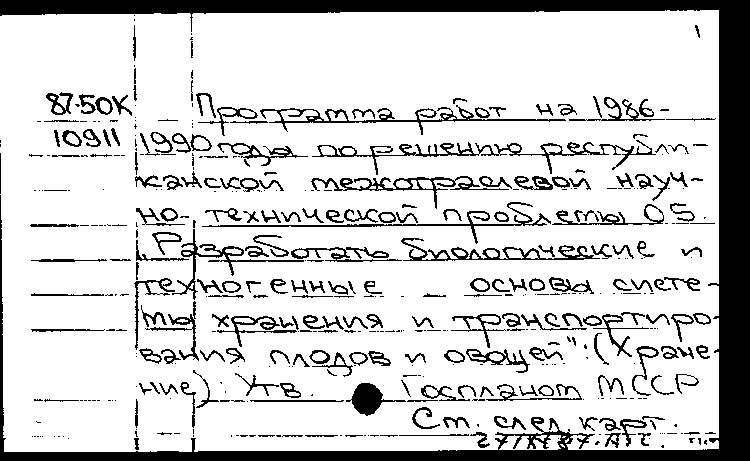 1
87-50К Программа работ на 1986-
10911 1990 годы по решению республи-
канской межотраслевой науч-
но-технической проблемы 05.
„Разработать биологические и
техногенные основы систе-
мы хранения и транспортиро-
вания плодов и овощей": (Хране-
ние): Утв. Госпланом МССР
См. след. карт.